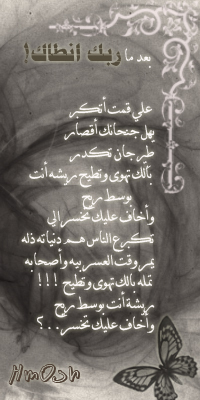 بعد ما ربك انطاك!
علي قمت أتكبر
بهل جنحانك أقصار
طر جان تكدر
بالك تهوى وتطيح ريشه أنت
بوسط ريح
وأخاف عليك تخسر الي
تكبرع الناس هم دنياته ذله
يمر وقت العسر بيه وأصحابه
تمله بالك تهوى وتطيح !!!
ريشة أنت بوسط ريح
وأخاف عليك تخسر..؟